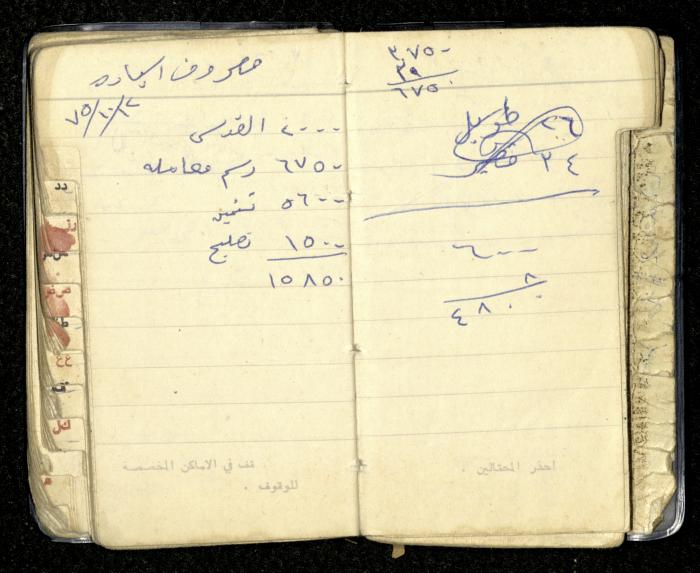 مصروف السياره
٧٥/١٠/١٢
٢٠٠٠ القدسي
٦٧٥٠ رسم معامله
٥٦٠٠ تثمين
١٥٠٠ تصليح
١٥٨٥٠
قف في الاماكن المخصصة
للوقوف .
٣٧٥٠
٣٩
٦٧٥٠
٢٦ طويل
٢٤ قصير
٦٠٠
٨
٤٨٠٠
احذر المحتالين .